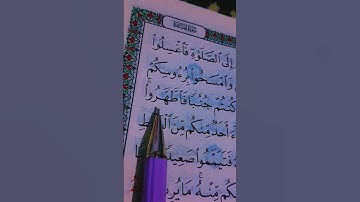 إِلَى ٱلصَّلَوٰةِ فَٱغْسِلُوا۟
وَٱمْسَحُوا۟ بِرُءُوسِكُمْ
كُنتُمْ جُنُبًا فَٱطَّهَّرُوا۟ ۚ
أَحَدٌ مِّنكُم مِّنَ
فَتَيَمَّمُوا۟ صَعِيدًا
مِّنْهُ ۚ مَا يُرِيدُ